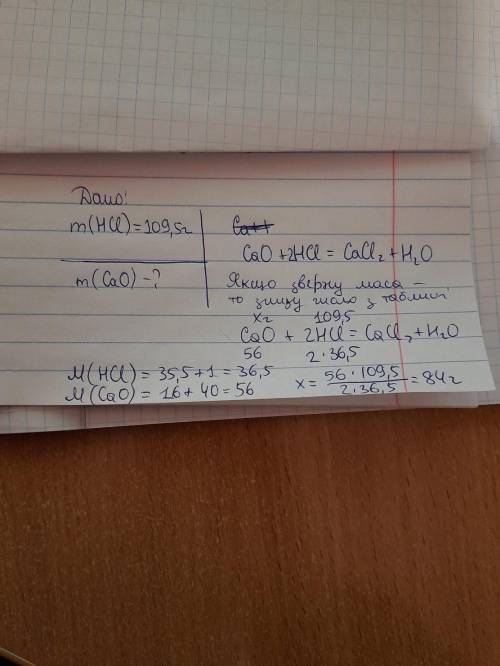 Дано:
m(HCl)=109,5г
m(CaO)-?
CaO+2HCl = CaCl₂+H₂O
Якщо зверху маса –
то знизу число з таблиці
xг 109,5
CaO + 2HCl = CaCl₂+H₂O
56 2·36,5
M(HCl) = 35,5+1 = 36,5
M(CaO) = 16+40 = 56
x = 56·109,5 / 2·36,5 = 84г